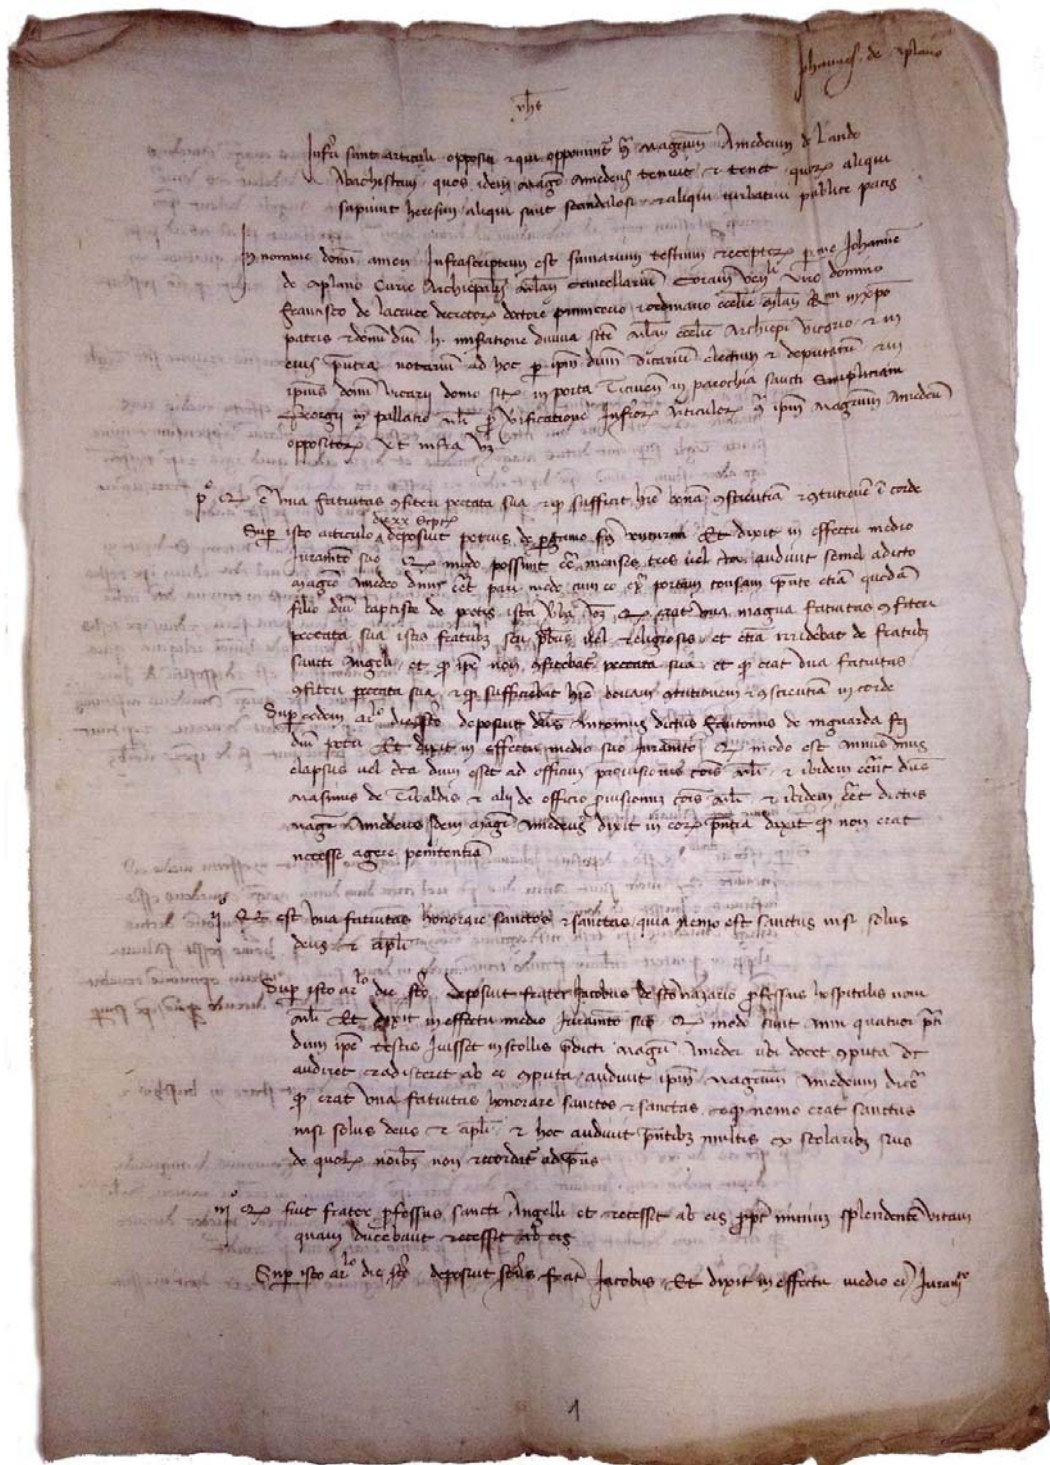 Johannes de aplano
yhs
Infra sunt articuli oppositi et qui opponuntur contra magistrum Amedeum de Lando
Abachistam quos idem magister Amedeus tenuit et tenet quorum aliqui
sapiunt heresim aliqui sunt scandalosi et aliqui turbativi publice pacis
In nomine domini amen Infrascriptum est sumarium testium receptorum per me Johannem
de aplano Curie Archiepiscopalis mediolani cancellarium Coram venerabili viro domino
Francisco de lacruce decretorum doctore primicerio et ordinario ecclesie mediolani in xpo
patris et domini domini miseratione divina sancte mediolani ecclesie Archiepiscopi Vicario et in
eius presentia notarium ad hoc per ipsum dominum Vicarium electum et deputatum et in
ipsius domini vicarii domo sita in porta Ticinensi in parochia sancti
Georgii in pallatio mediolani verificatione Infrascriptorum Articulorum contra ipsum magistrum Amedeum
oppositorum Et infra videlicet
p.o Quod est una fatuitas confiteri peccata sua et quod sufficit habere bonam conscientiam et contritionem in corde
Super isto articulo deposuit petrus de pergamo Et dixit in effectu medio
Juramento suo Quod modo possunt esse menses tres vel circa audivit semel a dicto
magistro Amedeo dum esset pari modo cum eo extra portam tonsam presente etiam quodam
filio domini baptiste de ista verba videlicet Quod erat una magna fatuitas confiteri
peccata sua istis fratribus seu presbiteris vel religiosis et etiam irridebat de fratribus
sancti Angeli et quod ipse non confitebatur peccata sua et quod erat una fatuitas
confiteri peccata sua et quod sufficiebat habere bonam contritionem et conscientiam in corde
Super eodem articulo die deposuit dominus Antonius dictus de inguarda
domini petri Et dixit in effectu medio suo Juramento Quod modo est annus unus
elapsus vel circa dum esset ad officium provisionis comunis mediolani et ibidem essent dominus
Masinus de Tibaldis et alii de officio provisionum comunis mediolani et ibidem esset dictus
magister Amedeus Idem magister Amedeus dixit in eorum presentia dixit quod non erat
necesse agere penitentiam
ij Quod est una fatuitas honorare sanctos et sanctas quia nemo est sanctus nisi solus
deus et apostoli
Super isto articulo die deposuit frater Jacobus de sancto nazario professus hospitalis novi
mediolani Et dixit in effectu medio Juramento suo Quod modo sunt anni quatuor preteriti
dum ipse testis Ivisset in scollis predicti magistri Amedei ubi docet computa ut
audiret et adisceret ab eo computa audivit ipsum magistrum Amedeum dicere
quod erat una fatuitas honorare sanctos et sanctas et quod nemo erat sanctus
nisi solus deus et apostoli et hoc audivit presentibus multis ex scolaribus suis
de quorum nominibus non recordatur ad presens
iij.o Quod fuit frater professus sancti Angelli et recessit ab eis propter nimium splendentem vitam
quam ducebant recessit ab eis
Super isto articulo die deposuit frater Jacobus Et dixit in effectu medio eius Juramento
1